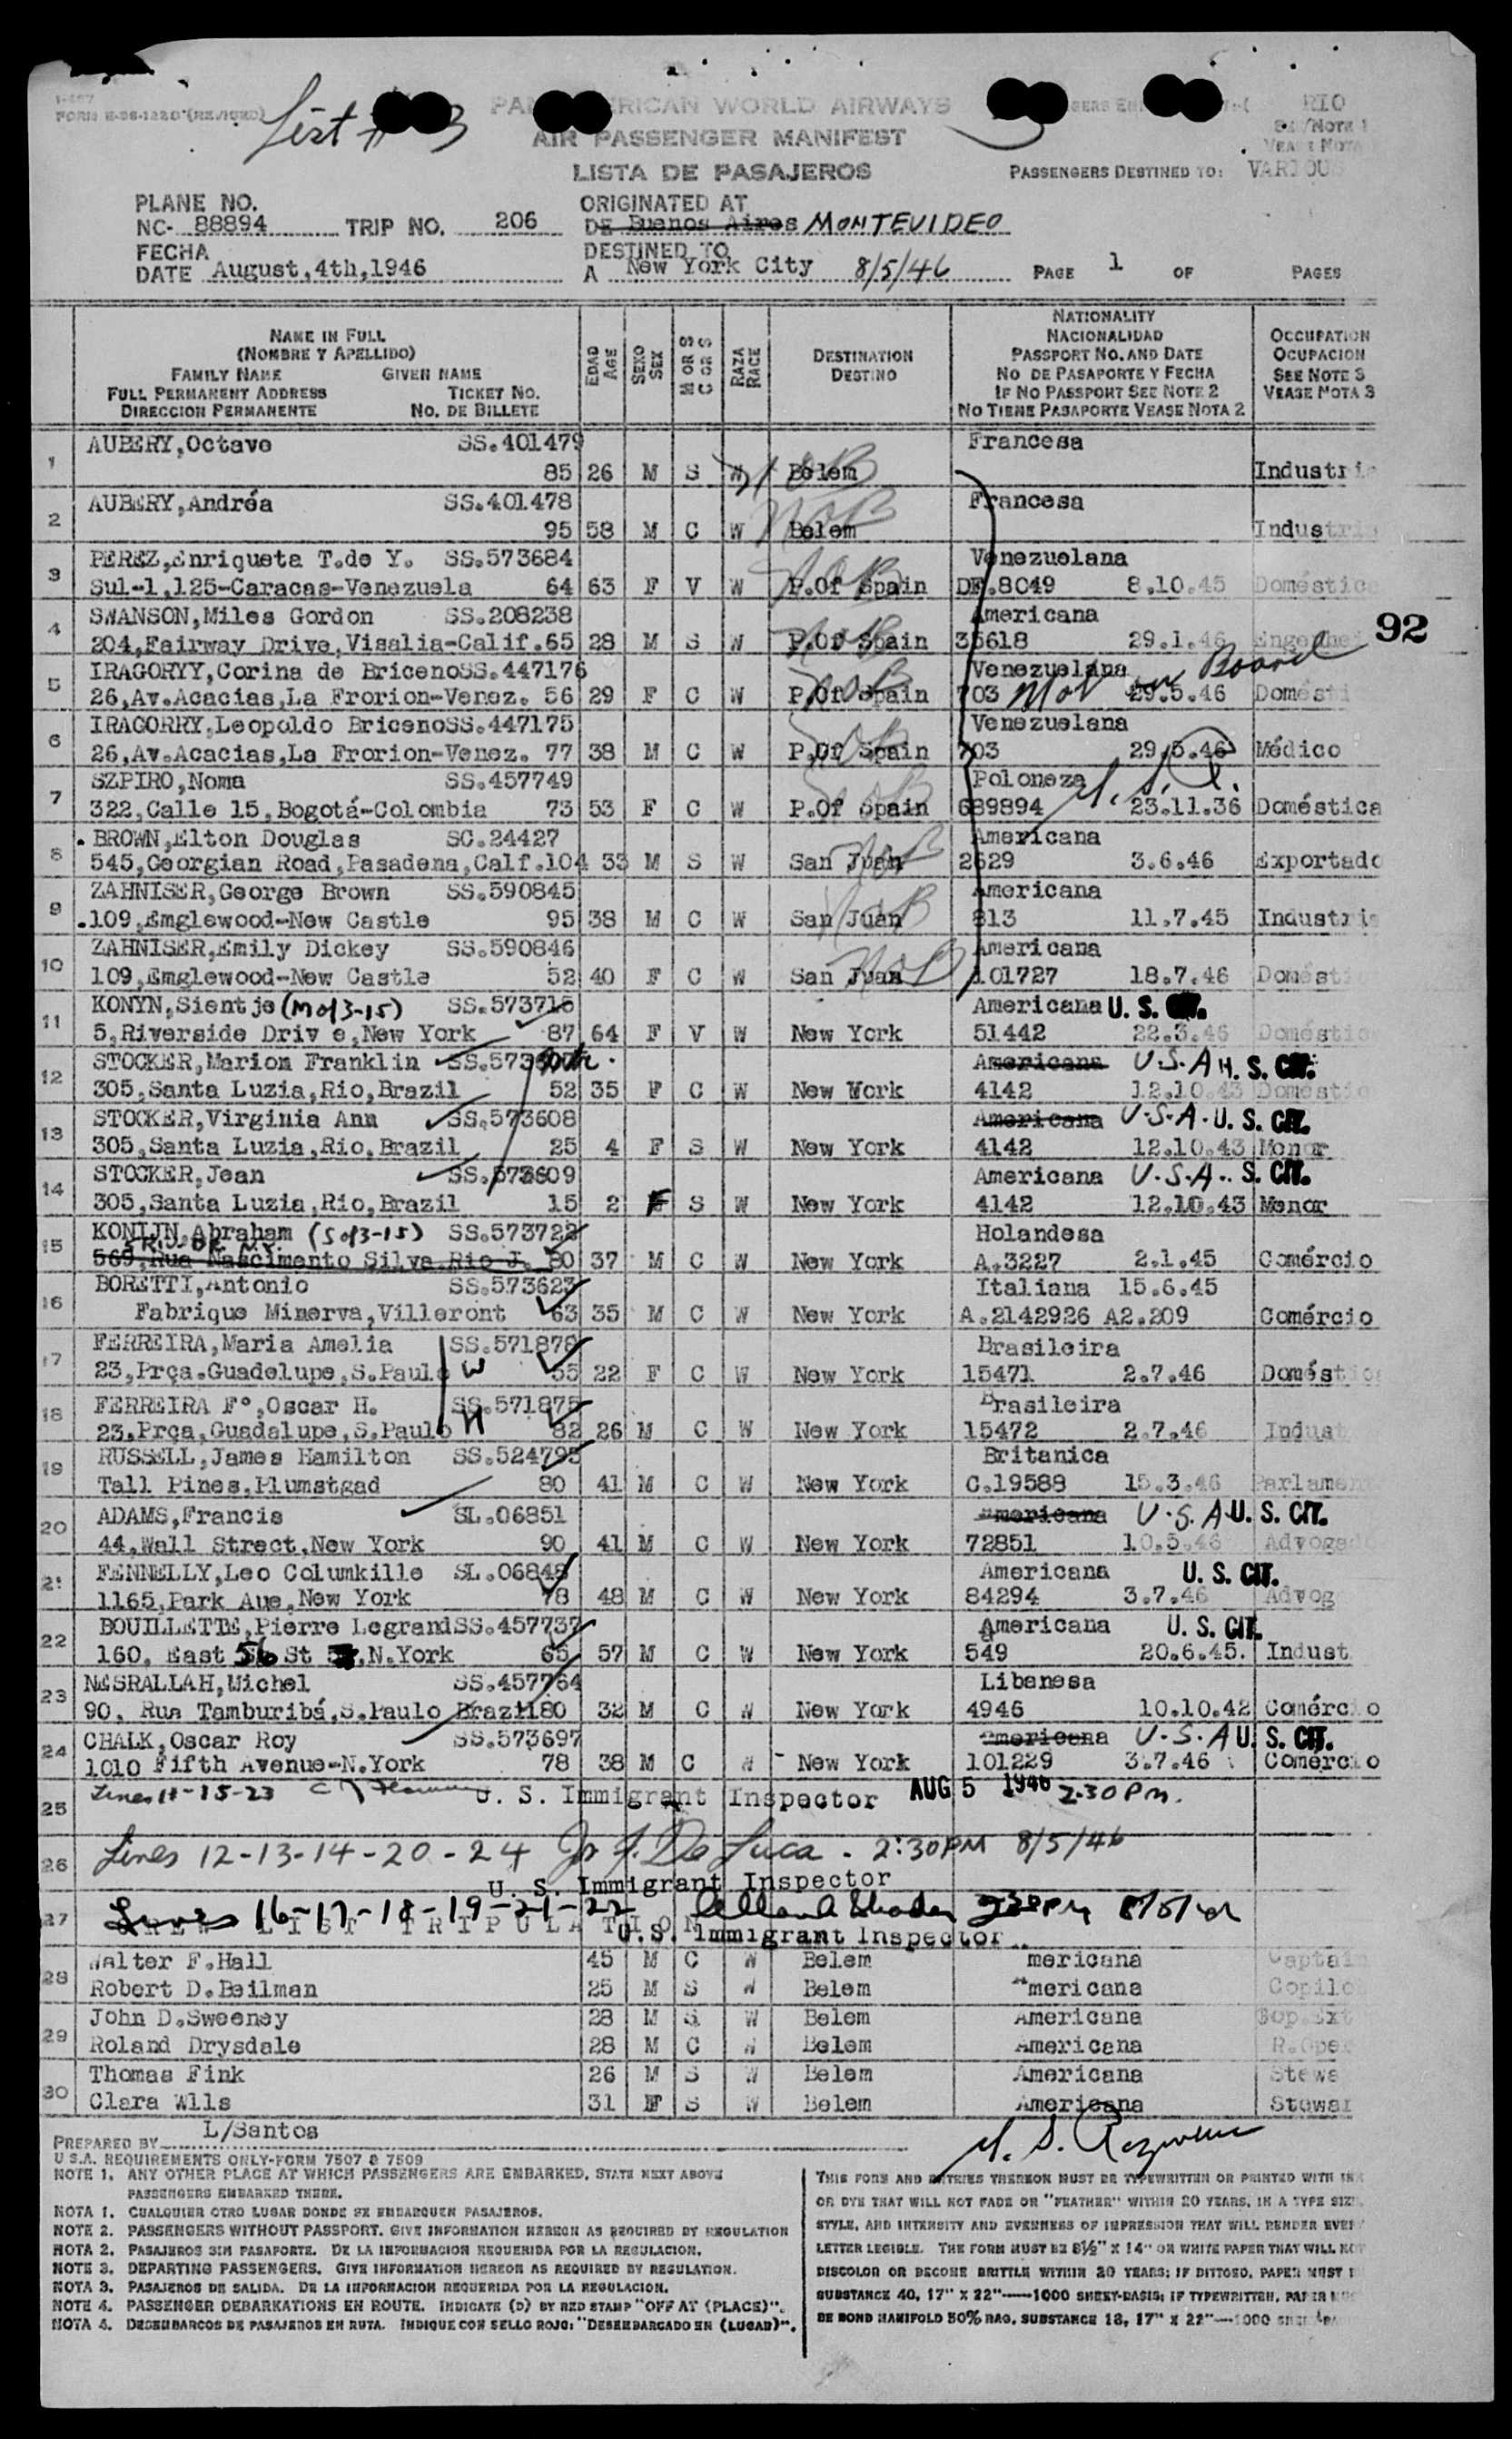 I-467
FORM E-96-1220 (REVISED)
List # 3
PAN AMERICAN WORLD AIRWAYS
AIR PASSENGER MANIFEST
LISTA DE PASAJEROS
RIO
PASSENGERS DESTINED TO: VARIOUS
PLANE NO.
NC- 88894 TRIP NO. 206
ORIGINATED AT
DE Buenos Aires MONTEVIDEO
FECHA
DATE August,4th,1946
DESTINED TO
A New York City 8/5/46
PAGE 1 OF PAGES
NAME IN FULL
(NOMBRE Y APELLIDO)
FAMILY NAME GIVEN NAME
FULL PERMANENT ADDRESS TICKET NO.
DIRECCION PERMANENTE NO. DE BILLETE
EDAD AGE
SEXO SEX
M OR S C OR S
RAZA RACE
DESTINATION DESTINO
NATIONALITY
NACIONALIDAD
PASSPORT NO. AND DATE
NO DE PASAPORTE Y FECHA
IF NO PASSPORT SEE NOTE 2
NO TIENE PASAPORTE VEASE NOTA 2
OCCUPATION
OCUPACION
SEE NOTE 3
VEASE NOTA 3
1 AUBERY,Octave SS.401479 Francesa
85 26 M S W Belem NOB Industri
2 AUBERY,Andréa SS.401478 Francesa
95 58 M C W Belem NOB Industri
3 PEREZ,Enriqueta T.de Y. SS.573684 Venezuelana
Sul-1,125-Caracas-Venezuela 64 63 F V W P.Of Spain NOB DF.8049 8.10.45 Doméstica
4 SWANSON,Miles Gordon SS.208238 Americana
204,Fairway Drive,Visalia-Calif.65 28 M S W P.Of Spain NOB 35618 29.1.46 Engenhei
92
5 IRAGORYY,Corina de BricenoSS.447176 Venezuelana
26,Av.Acacias,La Frorion-Venez. 56 29 F C W P.Of Spain NOB 703 29.5.46 Domésti
Not on Board
6 IRAGORRY,Leopoldo BricenoSS.447175 Venezuelana
26,Av.Acacias,La Frorion-Venez. 77 38 M C W P.Of Spain NOB 703 29.5.46 Médico
7 SZPIRO,Noma SS.457749 Poloneza
322,Calle 15,Bogotá-Colombia 73 53 F C W P.Of Spain NOB 689894 23.11.36 Doméstica
8 BROWN,Elton Douglas SC.24427 Americana
545,Georgian Road,Pasadena,Calf.104 33 M S W San Juan NOB 2629 3.6.46 Exportado
9 ZAHNISER,George Brown SS.590845 Americana
109,Emglewood-New Castle 95 38 M C W San Juan NOB 813 11.7.45 Industri
10 ZAHNISER,Emily Dickey SS.590846 Americana
109,Emglewood-New Castle 52 40 F C W San Juan NOB 101727 18.7.46 Domésti
11 KONYN,Sientje (M of 3-15) SS.573715 Americana U. S. CIT.
5,Riverside Driv e,New York 87 64 F V W New York 51442 22.3.46 Doméstic
12 STOCKER,Marion Franklin Americana U.S.A U. S. CIT.
305,Santa Luzia,Rio,Brazil 52 35 F C W New York 4142 12.10.43 Doméstic
13 STOCKER,Virginia Ann SS.573608 Americana U.S.A. U. S. CIT.
305,Santa Luzia,Rio,Brazil 25 4 F S W New York 4142 12.10.43 Menor
14 STOCKER,Jean SS.573609 Americana U.S.A. S. CIT.
305,Santa Luzia,Rio,Brazil 15 2 F S W New York 4142 12.10.43 Menor
15 KONIJN,Abraham (S of 3-15) SS.573722 Holandesa
5 RIV. DR. N.Y.
569,Rua Nascimento Silva,Rio J. 80 37 M C W New York A.3227 2.1.45 Comércio
16 BORETTI,Antonio SS.573623 Italiana 15.6.45
Fabrique Minerva,Villeront 63 35 M C W New York A.2142926 A2.209 Comércio
17 FERREIRA,Maria Amelia SS.571878 Brasileira
23,Prça.Guadelupe,S.Paulo W 55 22 F C W New York 15471 2.7.46 Domésti
18 FERREIRA Fº,Oscar H. SS.571875 Brasileira
23,Prça,Guadalupe,S.Paulo H 82 26 M C W New York 15472 2.7.46 Indust
19 RUSSELL,James Hamilton SS.524795 Britanica
Tall Pines,Plumstgad 80 41 M C W New York C.19588 15.3.46 Parlamen
20 ADAMS,Francis SL.06851 Americana U.S.A. U. S. CIT.
44,Wall Street,New York 90 41 M C W New York 72851 10.5.46 Advogado
21 FENNELLY,Leo Columkille SL.06848 Americana U. S. CIT.
1165,Park Aue,New York 78 48 M C W New York 84294 3.7.46 Advog
22 BOUILLETTE,Pierre LegrandSS.457737 Americana U. S. CIT.
160, East 56 St ,N.York 65 57 M C W New York 549 20.6.45. Indust
23 NESRALLAH,Michel SS.457764 Libanesa
90, Rua Tamburibá,S.Paulo Brazil 80 32 M C W New York 4946 10.10.42 Comércio
24 CHALK,Oscar Roy SS.573697 Americana U.S.A U. S. CIT.
1010 Fifth Avenue-N.York 78 38 M C W New York 101229 3.7.46 Comércio
25 Lines 11-15-23 U. S. Immigrant Inspector AUG 5 1946 2:30 Pm.
26 Lines 12-13-14-20-24 De Luca - 2:30PM 8/5/46
U. S. Immigrant Inspector
27 Lines 16-17-18-19-21-22 230 PM 8/5/46
CREW LIST TRIPULATION
U.S. Immigrant Inspector
28 Walter F.Hall 45 M C W Belem mericana Captain
Robert D.Beilman 25 M S W Belem Americana Copilo
29 John D.Sweeney 28 M S W Belem Americana
Roland Drysdale 28 M C W Belem Americana R.Oper
30 Thomas Fink 26 M S W Belem Americana Stewa
Clara Wlls 31 F S W Belem Americana Stewar
PREPARED BY L/Santos
U S.A. REQUIREMENTS ONLY-FORM 7507 & 7509
NOTE 1. ANY OTHER PLACE AT WHICH PASSENGERS ARE EMBARKED, STATE NEXT ABOVE
PASSENGERS EMBARKED THERE.
NOTA 1. CUALQUIER OTRO LUGAR DONDE SE EMBARQUEN PASAJEROS.
NOTE 2. PASSENGERS WITHOUT PASSPORT. GIVE INFORMATION HEREON AS REQUIRED BY REGULATION
NOTA 2. PASAJEROS SIN PASAPORTE. DE LA INFORMACION REQUERIDA POR LA REGULACION.
NOTE 3. DEPARTING PASSENGERS. GIVE INFORMATION HEREON AS REQUIRED BY REGULATION.
NOTA 3. PASAJEROS DE SALIDA. DE LA INFORMACION REQUERIDA POR LA REGULACION.
NOTE 4. PASSENGER DEBARKATIONS EN ROUTE. INDICATE (D) BY RED STAMP "OFF AT (PLACE)".
NOTA 4. DESEMBARCOS DE PASAJEROS EN RUTA. INDIQUE CON SELLO ROJO: "DESEMBARCADO EN (LUGAR)".
THIS FORM AND ENTRIES THEREON MUST BE TYPEWRITTEN OR PRINTED WITH INK
OR DYE THAT WILL NOT FADE OR "FEATHER" WITHIN 20 YEARS, IN A TYPE SIZE,
STYLE, AND INTENSITY AND EVENNESS OF IMPRESSION THAT WILL RENDER EVERY
LETTER LEGIBLE. THE FORM MUST BE 8½" X 14" OR WHITE PAPER THAT WILL NOT
DISCOLOR OR BECOME BRITTLE WITHIN 20 YEARS; IF DITTOED, PAPER MUST
SUBSTANCE 40, 17" X 22"——1000 SHEET-BASIS; IF TYPEWRITTEN, PAPER
BE BOND MANIFOLD 50% RAG, SUBSTANCE 18, 17" X 22"—1000